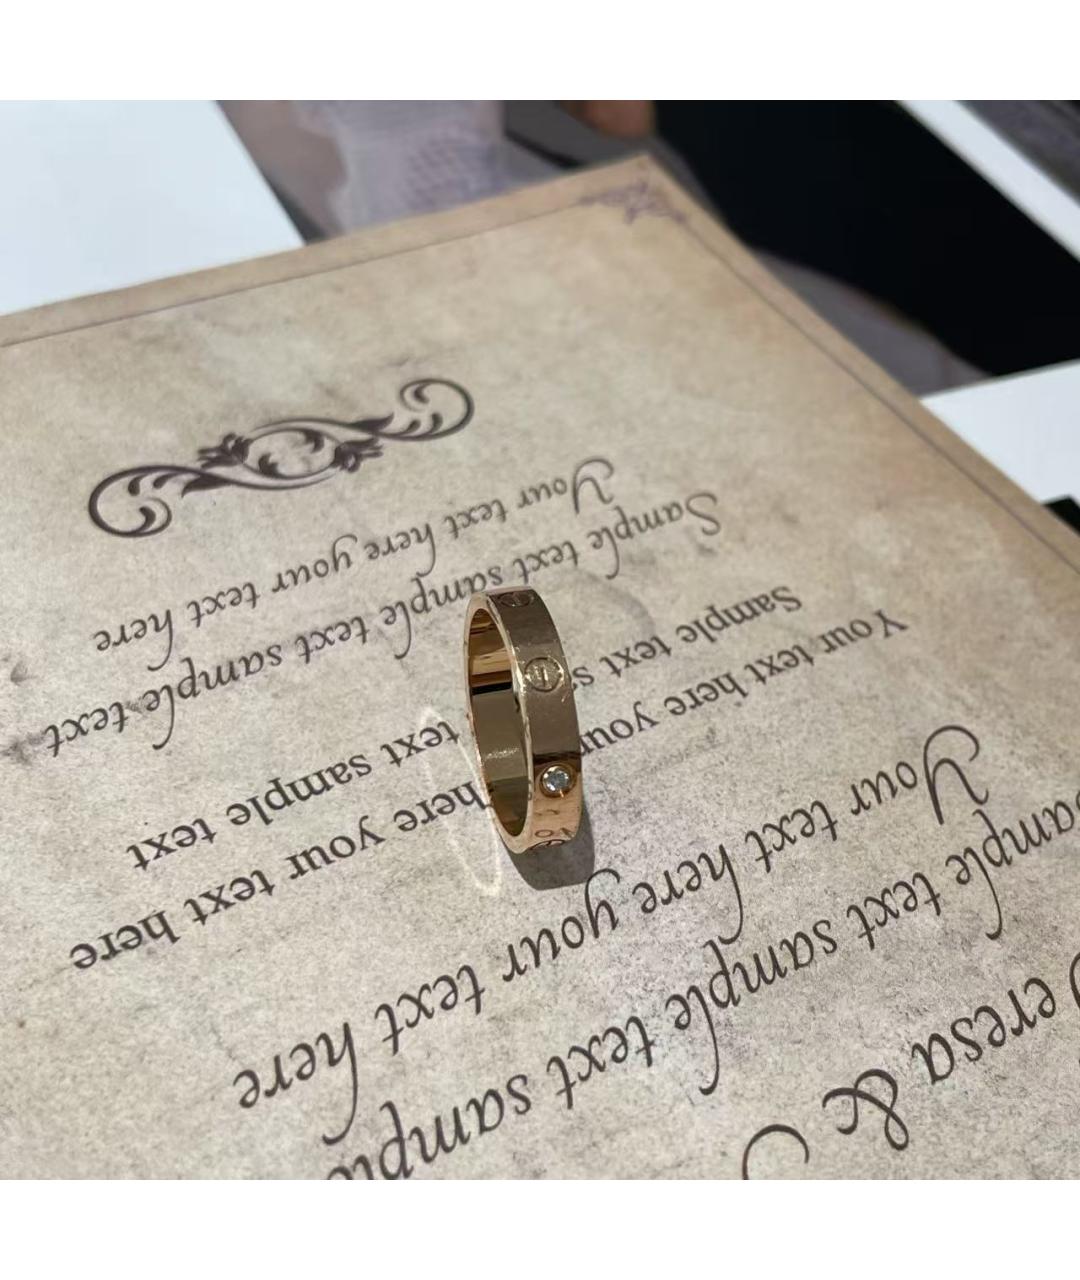 eresa &
Sample text sample
Your text here your text here
Your text here your here your text here
Sample text text sample text
Sample text sample text sample text
Your text here your text here